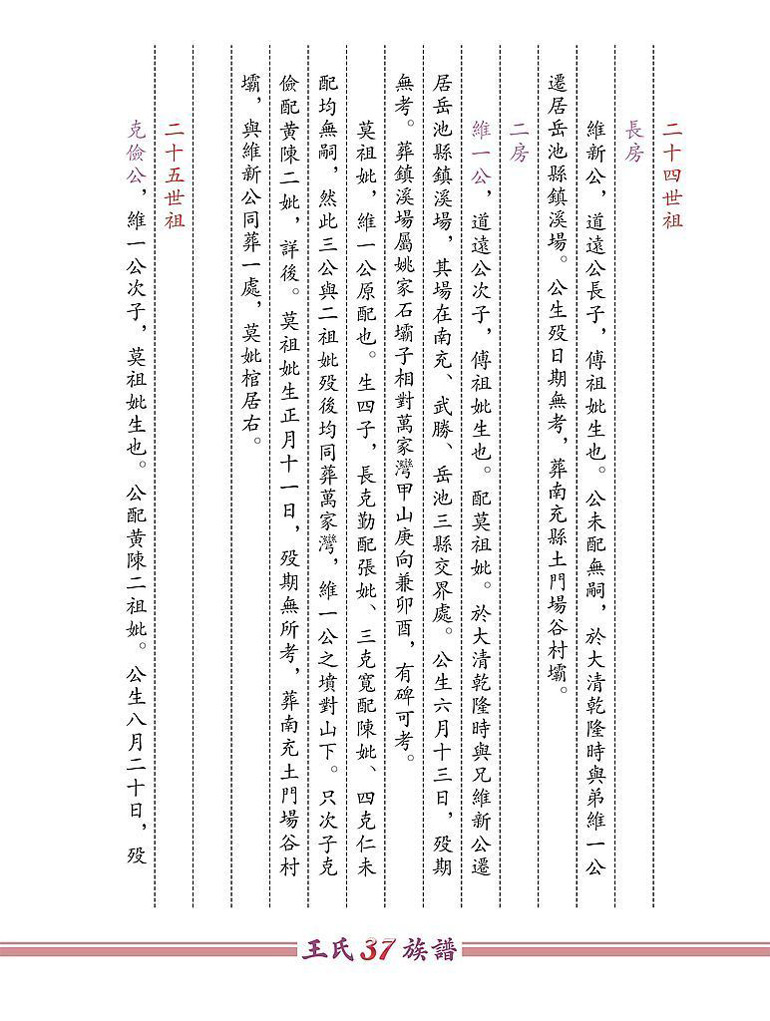 二十四世祖
長房
維新公，道遠公長子，傅祖妣生也。公未配無嗣，於大清乾隆時與弟維一公
遷居岳池縣鎮溪場。公生歿日期無考，葬南充縣土門場谷村壩。
二房
維一公，道遠公次子，傅祖妣生也。配莫祖妣。於大清乾隆時與兄維新公遷
居岳池縣鎮溪場，其場在南充、武勝、岳池三縣交界處。公生六月十三日，歿期
無考。葬鎮溪場屬姚家石壩子相對萬家灣甲山庚向兼卯酉，有碑可考。
莫祖妣，維一公原配也。生四子，長克勤配張妣、三克寬配陳妣、四克仁未
配均無嗣，然此三公與二祖妣歿後均同葬萬家灣，維一公之墳對山下。只次子克
儉配黃陳二妣，詳後。莫祖妣生正月十一日，歿期無所考，葬南充土門場谷村
壩，與維新公同葬一處，莫妣棺居右。
二十五世祖
克儉公，維一公次子，莫祖妣生也。公配黃陳二祖妣。公生八月二十日，歿
王氏37族譜